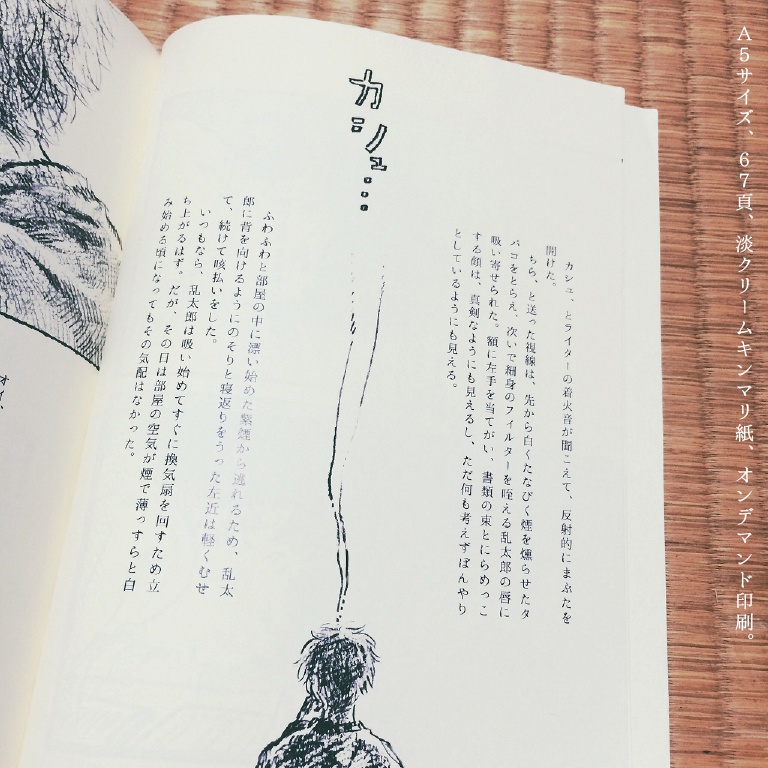 A5サイズ、67頁、淡クリームキンマリ紙、オンデマンド印刷。
カシュ…
カシュ、とライターの着火音が聞こえて、反射的にまぶたを
開けた。
ちら、と送った視線は、先から白くたなびく煙を燻らせたタ
バコをとらえ、次いで細身のフィルターを咥える乱太郎の唇に
吸い寄せられた。額に左手を当てがい、書類の束とにらめっこ
する顔は、真剣なようにも見えるし、ただ何も考えずぼんやり
としているようにも見える。
ふわふわと部屋の中に漂い始めた紫煙から逃れるため、乱太
郎に背を向けるようにのそりと寝返りをうった左近は軽くむせ
て、続けて咳払いをした。
いつもなら、乱太郎は吸い始めてすぐに換気扇を回すため立
ち上がるはず。だが、その日は部屋の空気が煙で薄っすらと白
み始める頃になってもその気配はなかった。